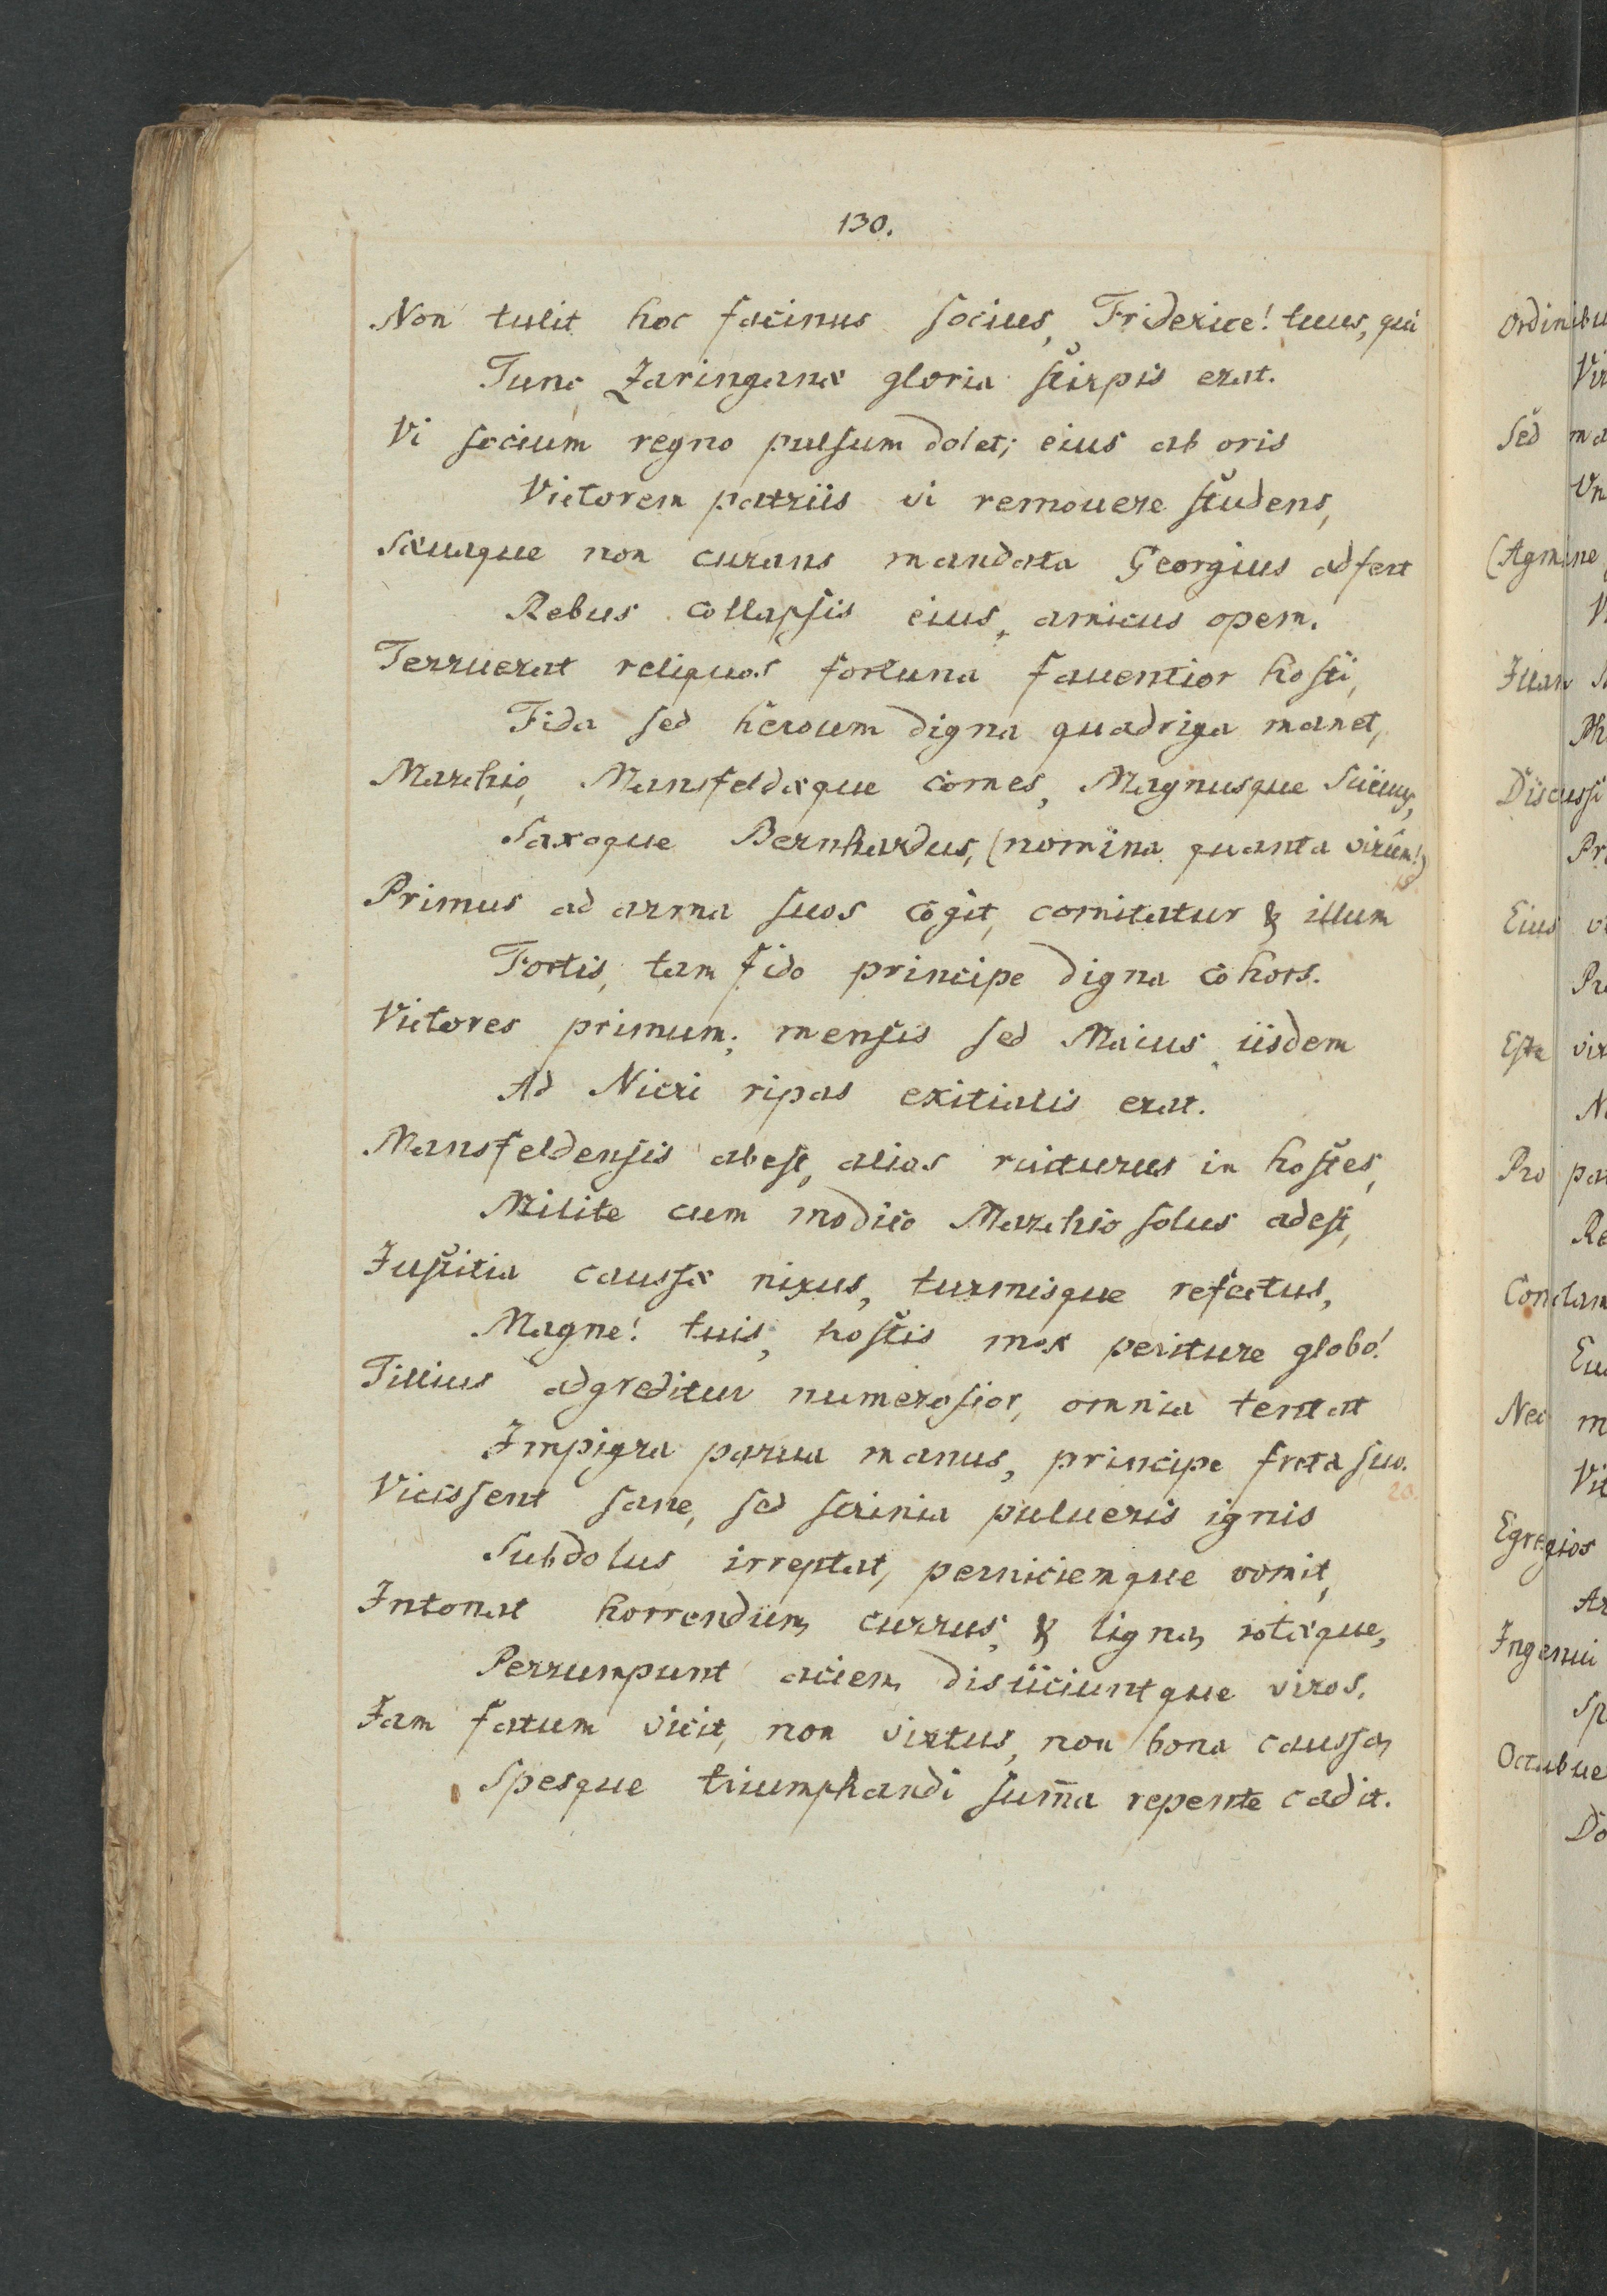 130.
Non tulit hoc facinus socius, Friderice! tuus, qui
Tunc Zaringanæ gloria stirpis erat.
Vi socium regno pulsum dolet; eius ab oris
Victorem patriis vi remouere studens,
Sæuaque non curans mandata Georgius adfert
Rebus collapsis eius, amicus opem.
Terruerat reliquos fortuna fauentior hosti,
Fida sed heroum digna quadriga manet,
Marchio, Mansfeldæque comes, Magnusque
Saxoque Bernhardus, (nomina quanta virûm!)
Primus ad arma suos cogit, comitatur & illum
Fortis, tam fido principe digna cohors.
Victores primum; mensis sed Maius iisdem
Ad Nicri ripas exitialis erat.
Mansfeldensis abest, alios ruiturus in hostes,
Milite cum modico Marchio solus adest,
Justitia caussæ nixus, turmisque refectus,
Magne! tuis, hostis mox periture globo!
Tillius adgreditur numerosior, omnia tentat
Impigra parua manus, principe freta suo.
20.
Vicissent sane, sed scrinia pulueris ignis
Subdolus irreptat, perniciemque vomit,
Intonat horrendum currus, & ligna, rotæque,
Perrumpunt aciem, disiiciuntque viros.
Jam fatum vicit, non virtus, non bona caussa,
Spesque triumphandi sum̅a repente cadit.
Ordinibu
Vir
Sed ma
Vn
(Agmine
Ph
Discussi
Pr
Eius
Pr
Este vir
Pro pa
Re
Conclam
Nec m
Egregios
Ar
Ingenui
Sp
Occubue
Do